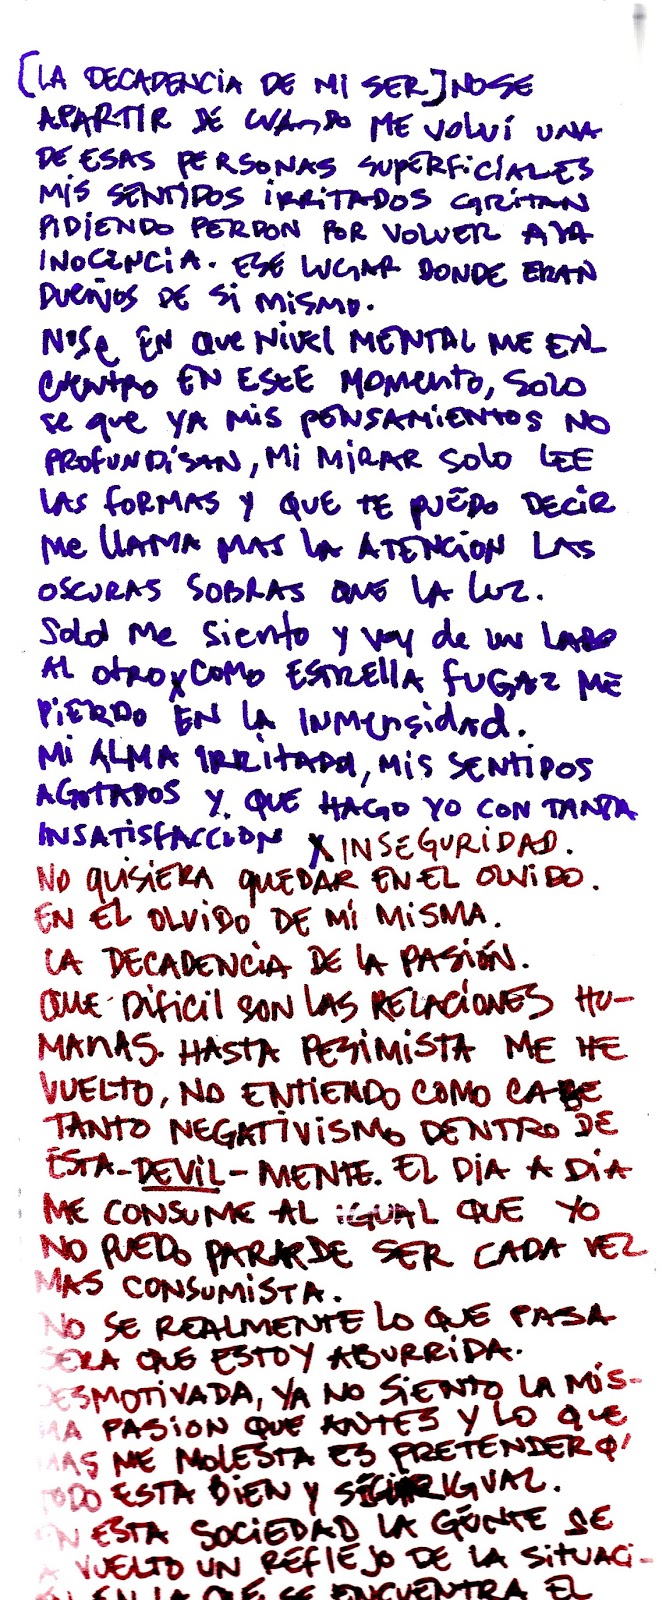 [LA DECADENCIA DE MI SER] NO SE
APARTIR DE CUANDO ME VOLVÍ UNA
DE ESAS PERSONAS SUPERFICIALES
MIS SENTIDOS IRRITADOS GRITAN
PIDIENDO PERDON POR VOLVER A LA
INOCENCIA. ESE LUGAR DONDE ERAN
DUEÑOS DE SI MISMO.
NOSE EN QUE NIVEL MENTAL ME EN
CUENTRO EN ESTE MOMENTO, SOLO
SE QUE YA MIS PENSAMIENTOS NO
PROFUNDISAN, MI MIRAR SOLO LEE
LAS FORMAS Y QUE TE PUEDO DECIR
ME LLAMA MAS LA ATENCION LAS
OSCURAS SOBRAS QUE LA LUZ.
SOLO ME SIENTO Y VOY DE UN LADO
AL OTRO Y COMO ESTRELLA FUGAZ ME
PIERDO EN LA INMENSIDAD.
MI ALMA IRRITADA, MIS SENTIDOS
AGOTADOS Y QUE HAGO YO CON TANTA
INSATISFACCION X INSEGURIDAD.
NO QUISIERA QUEDAR EN EL OLVIDO.
EN EL OLVIDO DE MÍ MISMA.
LA DECADENCIA DE LA PASIÓN.
QUE DIFICIL SON LAS RELACIONES HU-
MANAS. HASTA PESIMISTA ME HE
VUELTO, NO ENTIENDO COMO CABE
TANTO NEGATIVISMO DENTRO DE
ESTA-DEVIL-MENTE. EL DIA A DIA
ME CONSUME AL IGUAL QUE YO
NO PUEDO PARAR DE SER CADA VEZ
MAS CONSUMISTA.
NO SE REALMENTE LO QUE PASA
SERA QUE ESTOY ABURRIDA.
DESMOTIVADA, YA NO SIENTO LA MIS-
MA PASION QUE ANTES Y LO QUE
MAS ME MOLESTA ES PRETENDER Q'
TODO ESTA BIEN Y SEGUIR IGUAL.
EN ESTA SOCIEDAD LA GENTE SE
A VUELTO UN REFLEJO DE LA SITUACI-
ÓN EN LA QUE SE ENCUENTRA EL